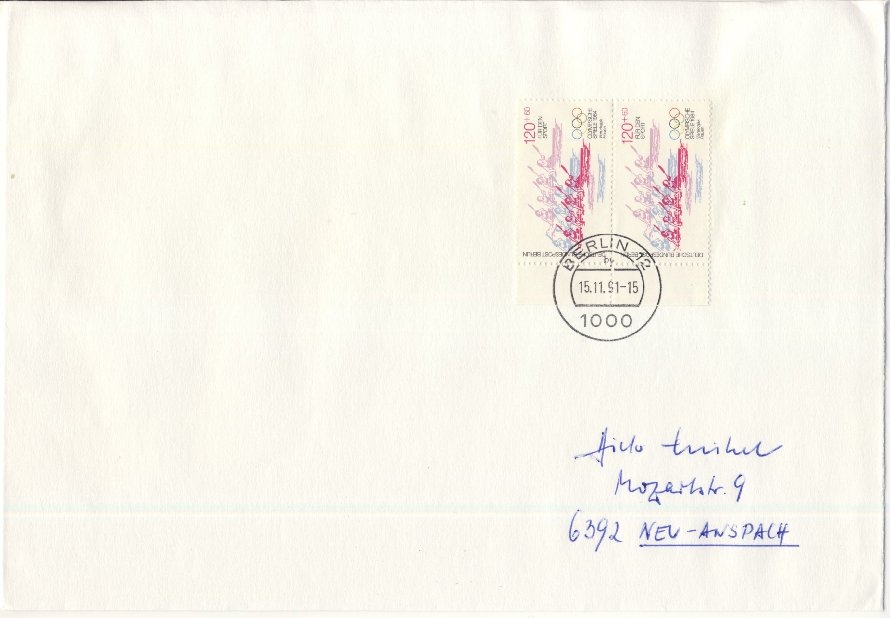 120+60
FÜR DEN
SPORT
OLYMPISCHE
SPIELE 1984
DEUTSCHE BUNDESPOST BERLIN
120+60
FÜR DEN
SPORT
OLYMPISCHE
SPIELE 1984
DEUTSCHE BUNDESPOST BERLIN
BERLIN 12
15.11.91-15
1000
Mozartstr. 9
6392 NEU-ANSPACH